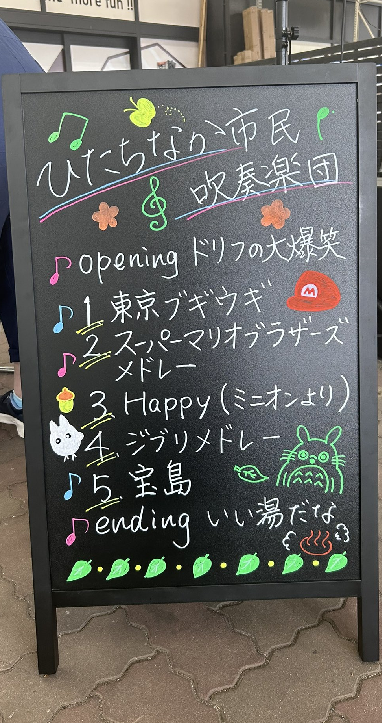 more fun!!
ひたちなか市民
吹奏楽団
opening ドリフの大爆笑
1 東京ブギウギ
2 スーパーマリオブラザーズ
メドレー
M
3 Happy (ミニオンより)
4 ジブリメドレー
5 宝島
ending いい湯だな